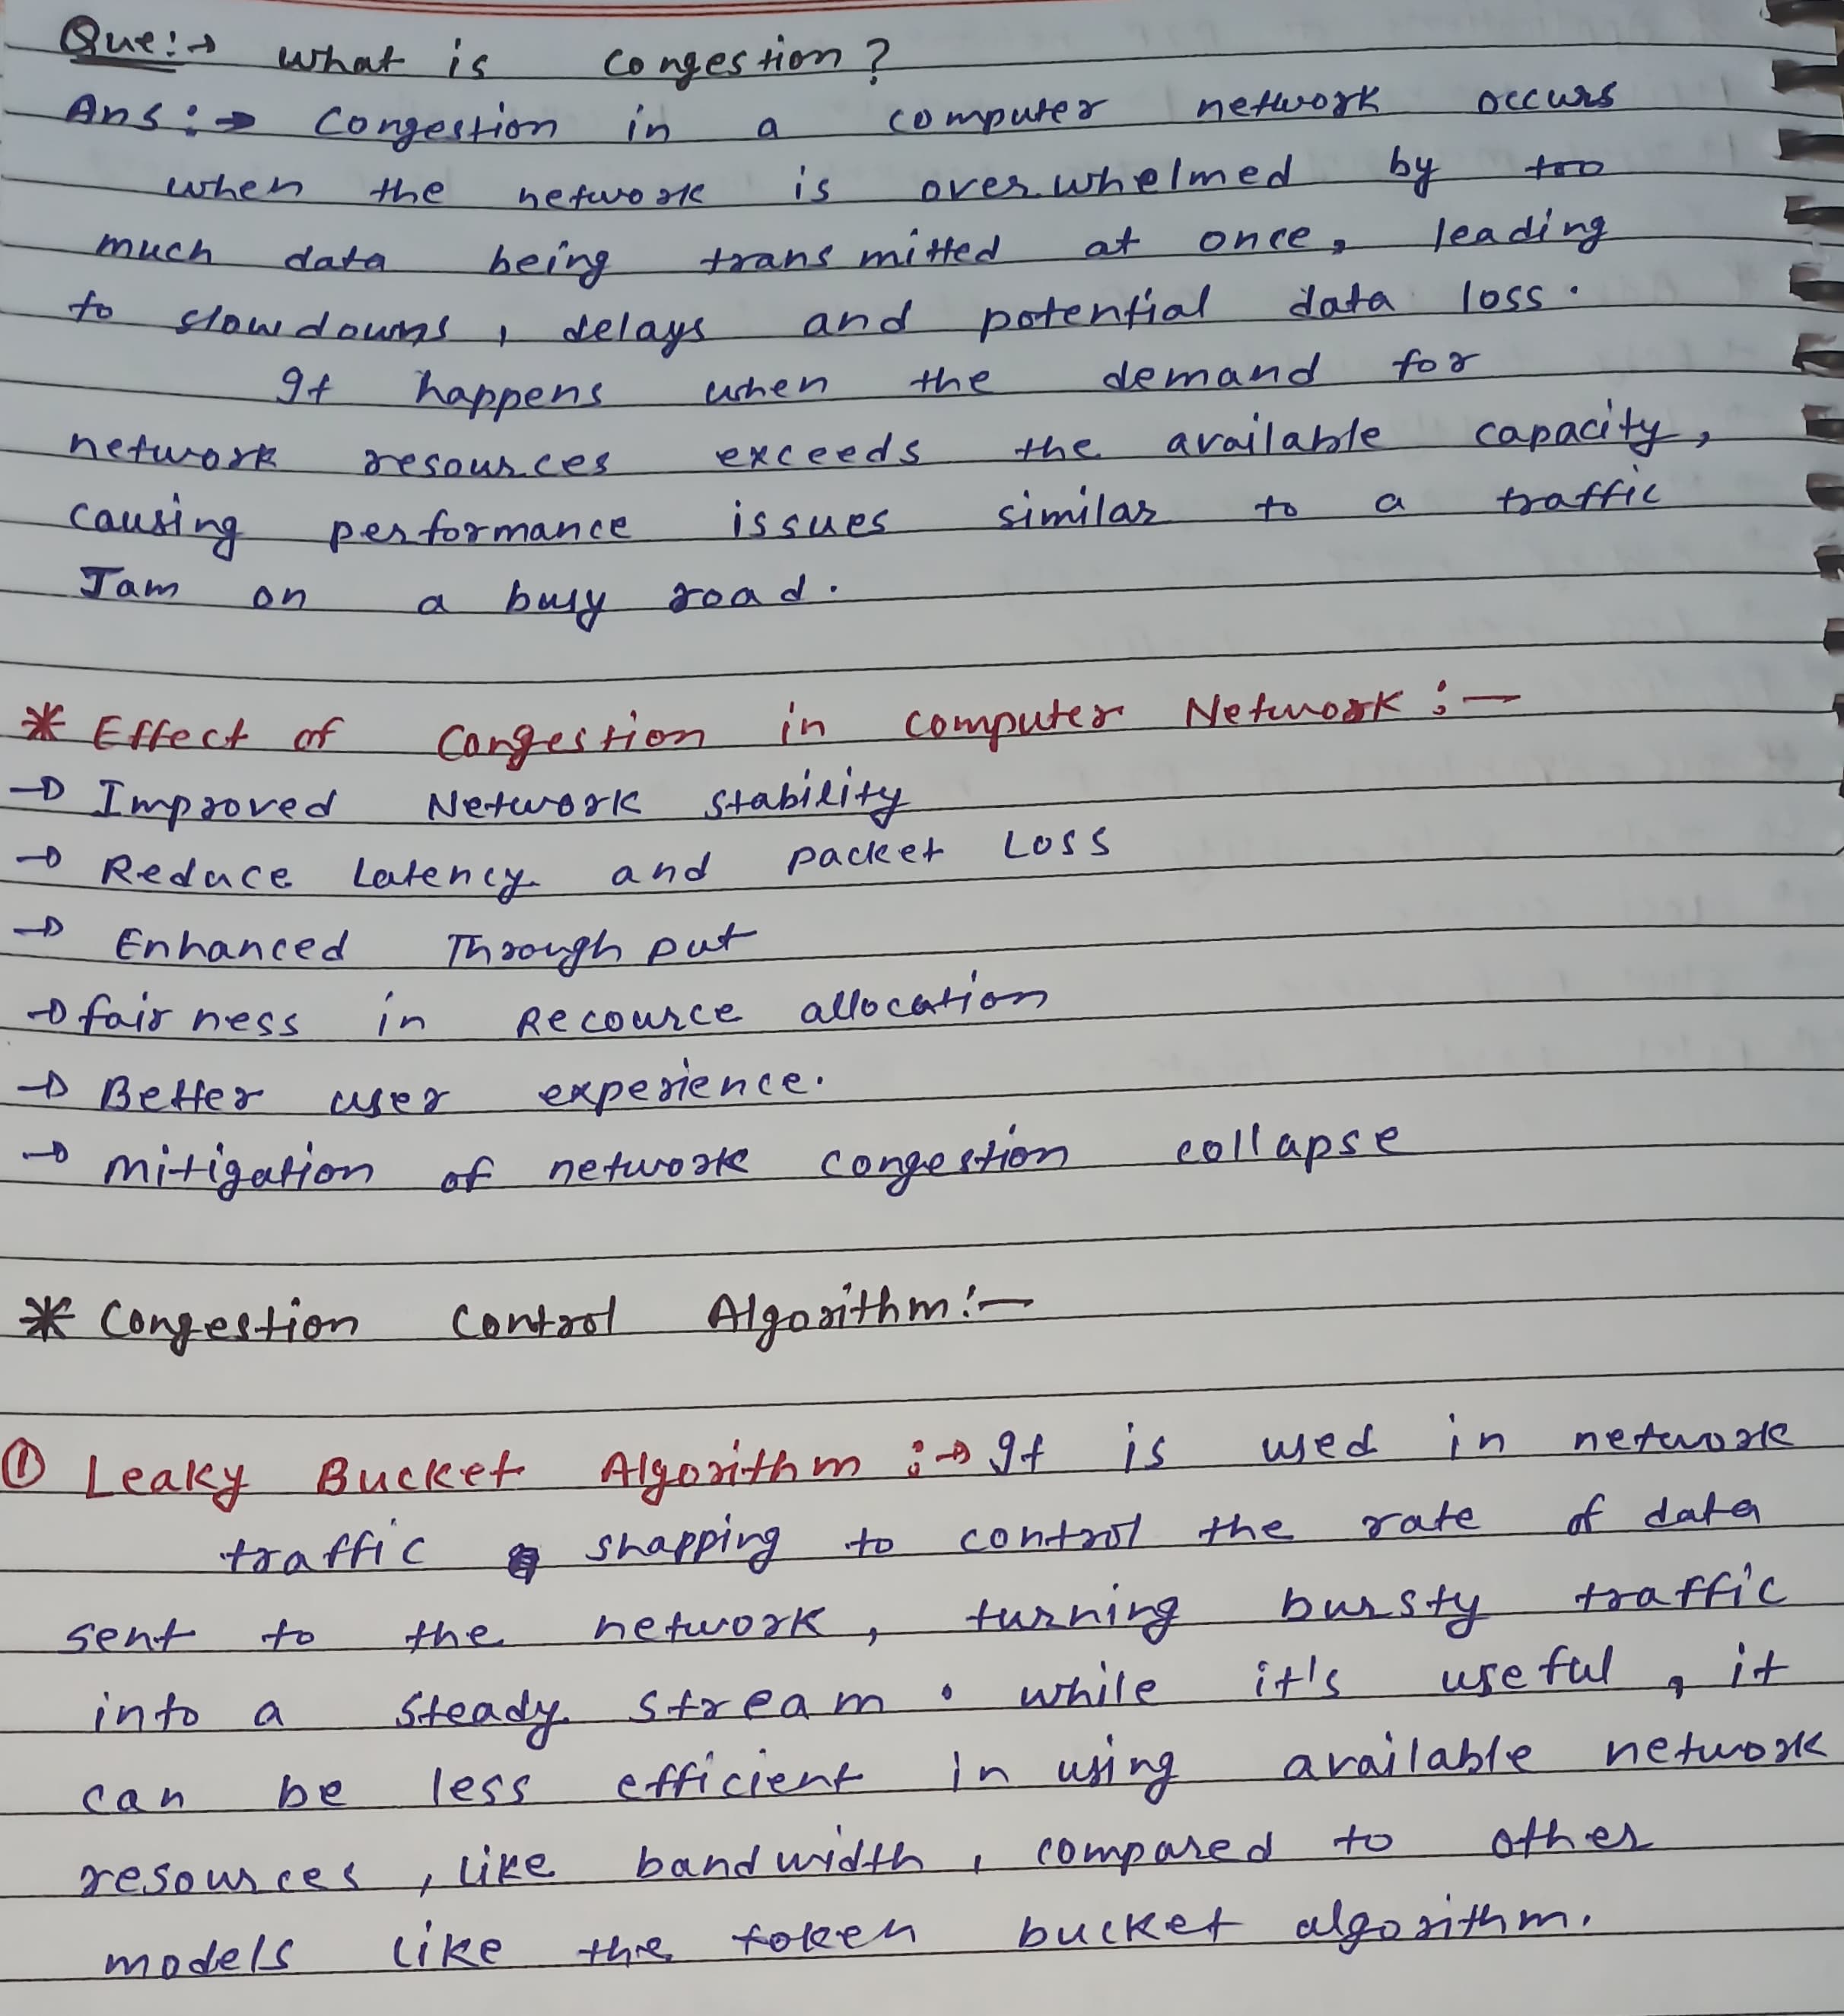 Que:→ what is congestion?
Ans:→ Congestion in a computer network occurs
when the network is overwhelmed by too
much data being transmitted at once, leading
to slowdowns, delays and potential data loss.
It happens when the demand for
network resources exceeds the available capacity,
causing performance issues similar to a traffic
Jam on a busy road.
* Effect of Congestion in Computer Network :—
→ Improved Network stability
→ Reduce Latency and packet Loss
→ Enhanced Throughput
→ fairness in Recource allocation
→ Better user experience.
→ mitigation of network congestion collapse
* Congestion Control Algorithm:—
① Leaky Bucket Algorithm :→ It is used in network
traffic shapping to control the rate of data
sent to the network, turning bursty traffic
into a steady stream. while it's useful, it
can be less efficient in using available network
resources, like bandwidth, compared to other
models like the token bucket algorithm.